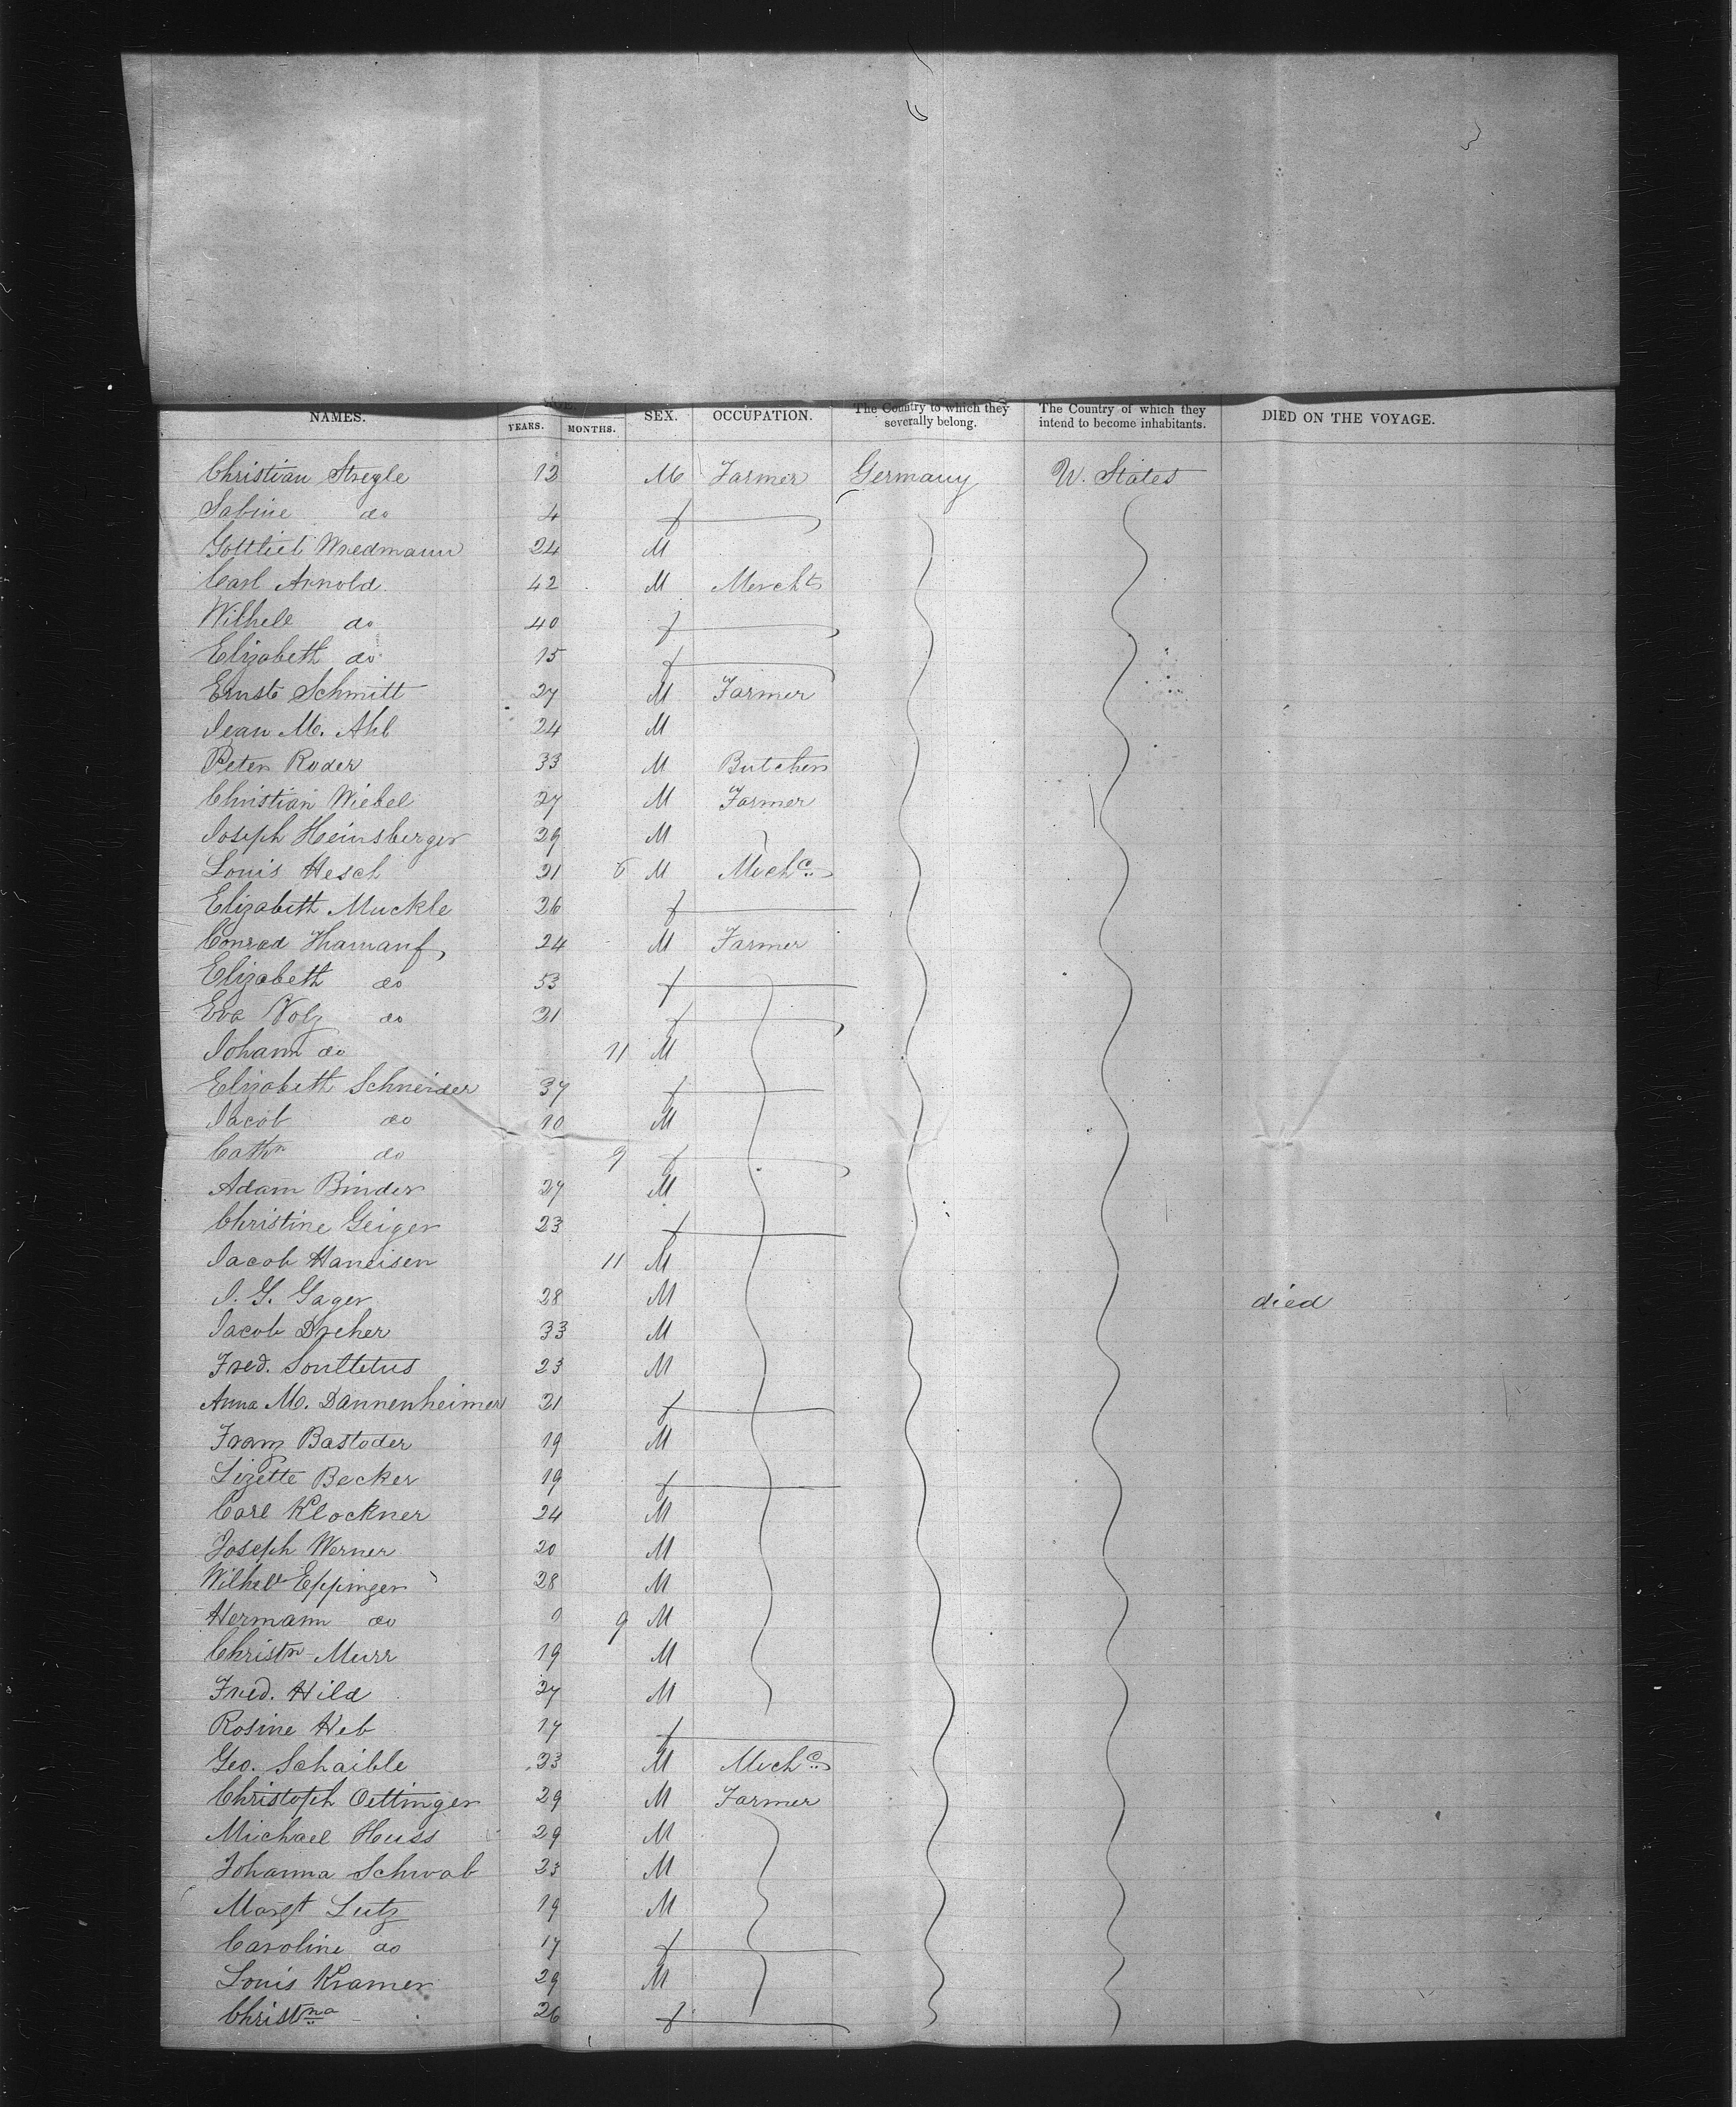 NAMES. AGE. YEARS. MONTHS. SEX. OCCUPATION. The Country to which they severally belong. The Country of which they intend to become inhabitants. DIED ON THE VOYAGE.
Christian Stregle 12 M Farmer Germany U. States
Sabine do 4 f
Gottlieb Wredmann 24 M
Carl Arnold 42 M Mercht
Wilhele do 40 f
Elizabeth do 15 f
Ernst Schmitt 27 M Farmer
Jean M. Ahl 24 M
Peter Roder 33 M Butcher
Christian Wiebel 27 M Farmer
Joseph Heinsberger 29 M
Louis Hesch 21 6 M Mechc
Elizabeth Muckle 26 f
Conrad 24 M Farmer
Elizabeth do 53 f
Eva Volz do 21 f
Johann do 11 M
Elizabeth Schneider 37 f
Jacob do 10 M
Cathn do 9 f
Adam Binder 27 M
Christine Geiger 23 f
Jacob Haneisen 11 M
J. G. Gager 28 M died
Jacob Dreher 33 M
Fred. Soultetus 23 M
Anna M. Dannenheimer 21 f
Franz Bastoder 19 M
Lizette Becker 19 f
Carl Klockner 24 M
Joseph Werner 20 M
Wilhele Eppinger 28 M
Hermann do 0 9 M
Christn Murr 19 M
Fred. Hild 27 M
Rosine Heb 17 f
Geo. Schaible 23 M Mechc
Christoph Oettinger 29 M Farmer
Michael Huss 29 M
Johanna Schwab 23 M
Margt Lutz 19 M
Caroline do 17 f
Louis Kramer 29 M
Christna 26 f